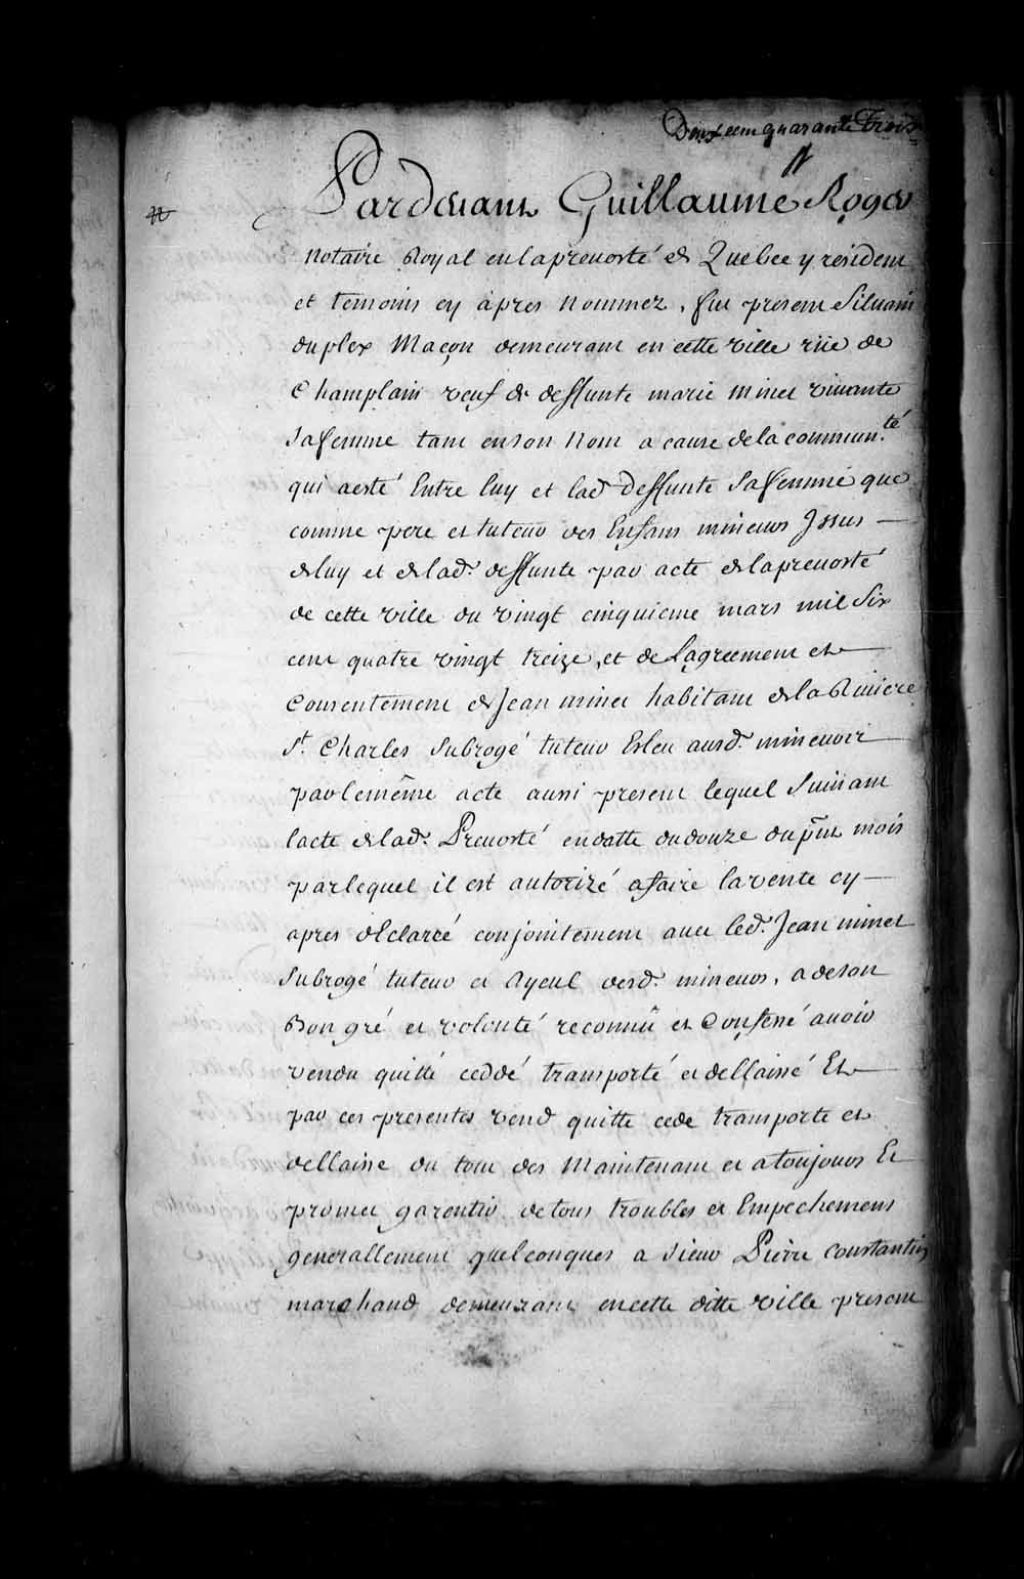 Deux cem quarante Trois
Pardevant Guillaume Roger
Notaire Royal en la prevosté de Quebec y residem
et temoins cy apres nommez, fut presem Silvain
duplex Maçon demeurant en cette ville rüe de
Champlain veuf de deffunte marie minet vivante
sa femme tant en son nom a cause de la commun.té
qui a esté Entre luy et lad. deffunte sa femme que
comme pere et tuteur des Enfans mineurs Issus
de luy et de lad.e deffunte par acte de la prevosté
de cette ville du vingt cinquieme mars mil Six
cent quatre vingt treize, et de Lagreement et
Consentement de Jean minet habitant de la Riviere
St. Charles subrogé tuteur Esleu ausd.
par le même acte aussi present lequel Suivant
lacte de lad.e Prevosté en datte du douze du pñt mois
par lequel il est autorizé a faire la vente cy
apres declarré conjointement avec led.t Jean minet
Subrogé tuteur et Ayeul desd. mineurs, a de son
Bon gré et volonté reconnû et Confessé avoir
vendu quitté ceddé transporté et dellaissé Et
par ces presentes vend quitte cede transporte et
dellaisse du tout des Maintenant et a toujours Et
promet garentir de tous troubles et Empechemens
generallement quelconques a Sieur Pierre Constantin
marchand demeurant en cette ditte ville present